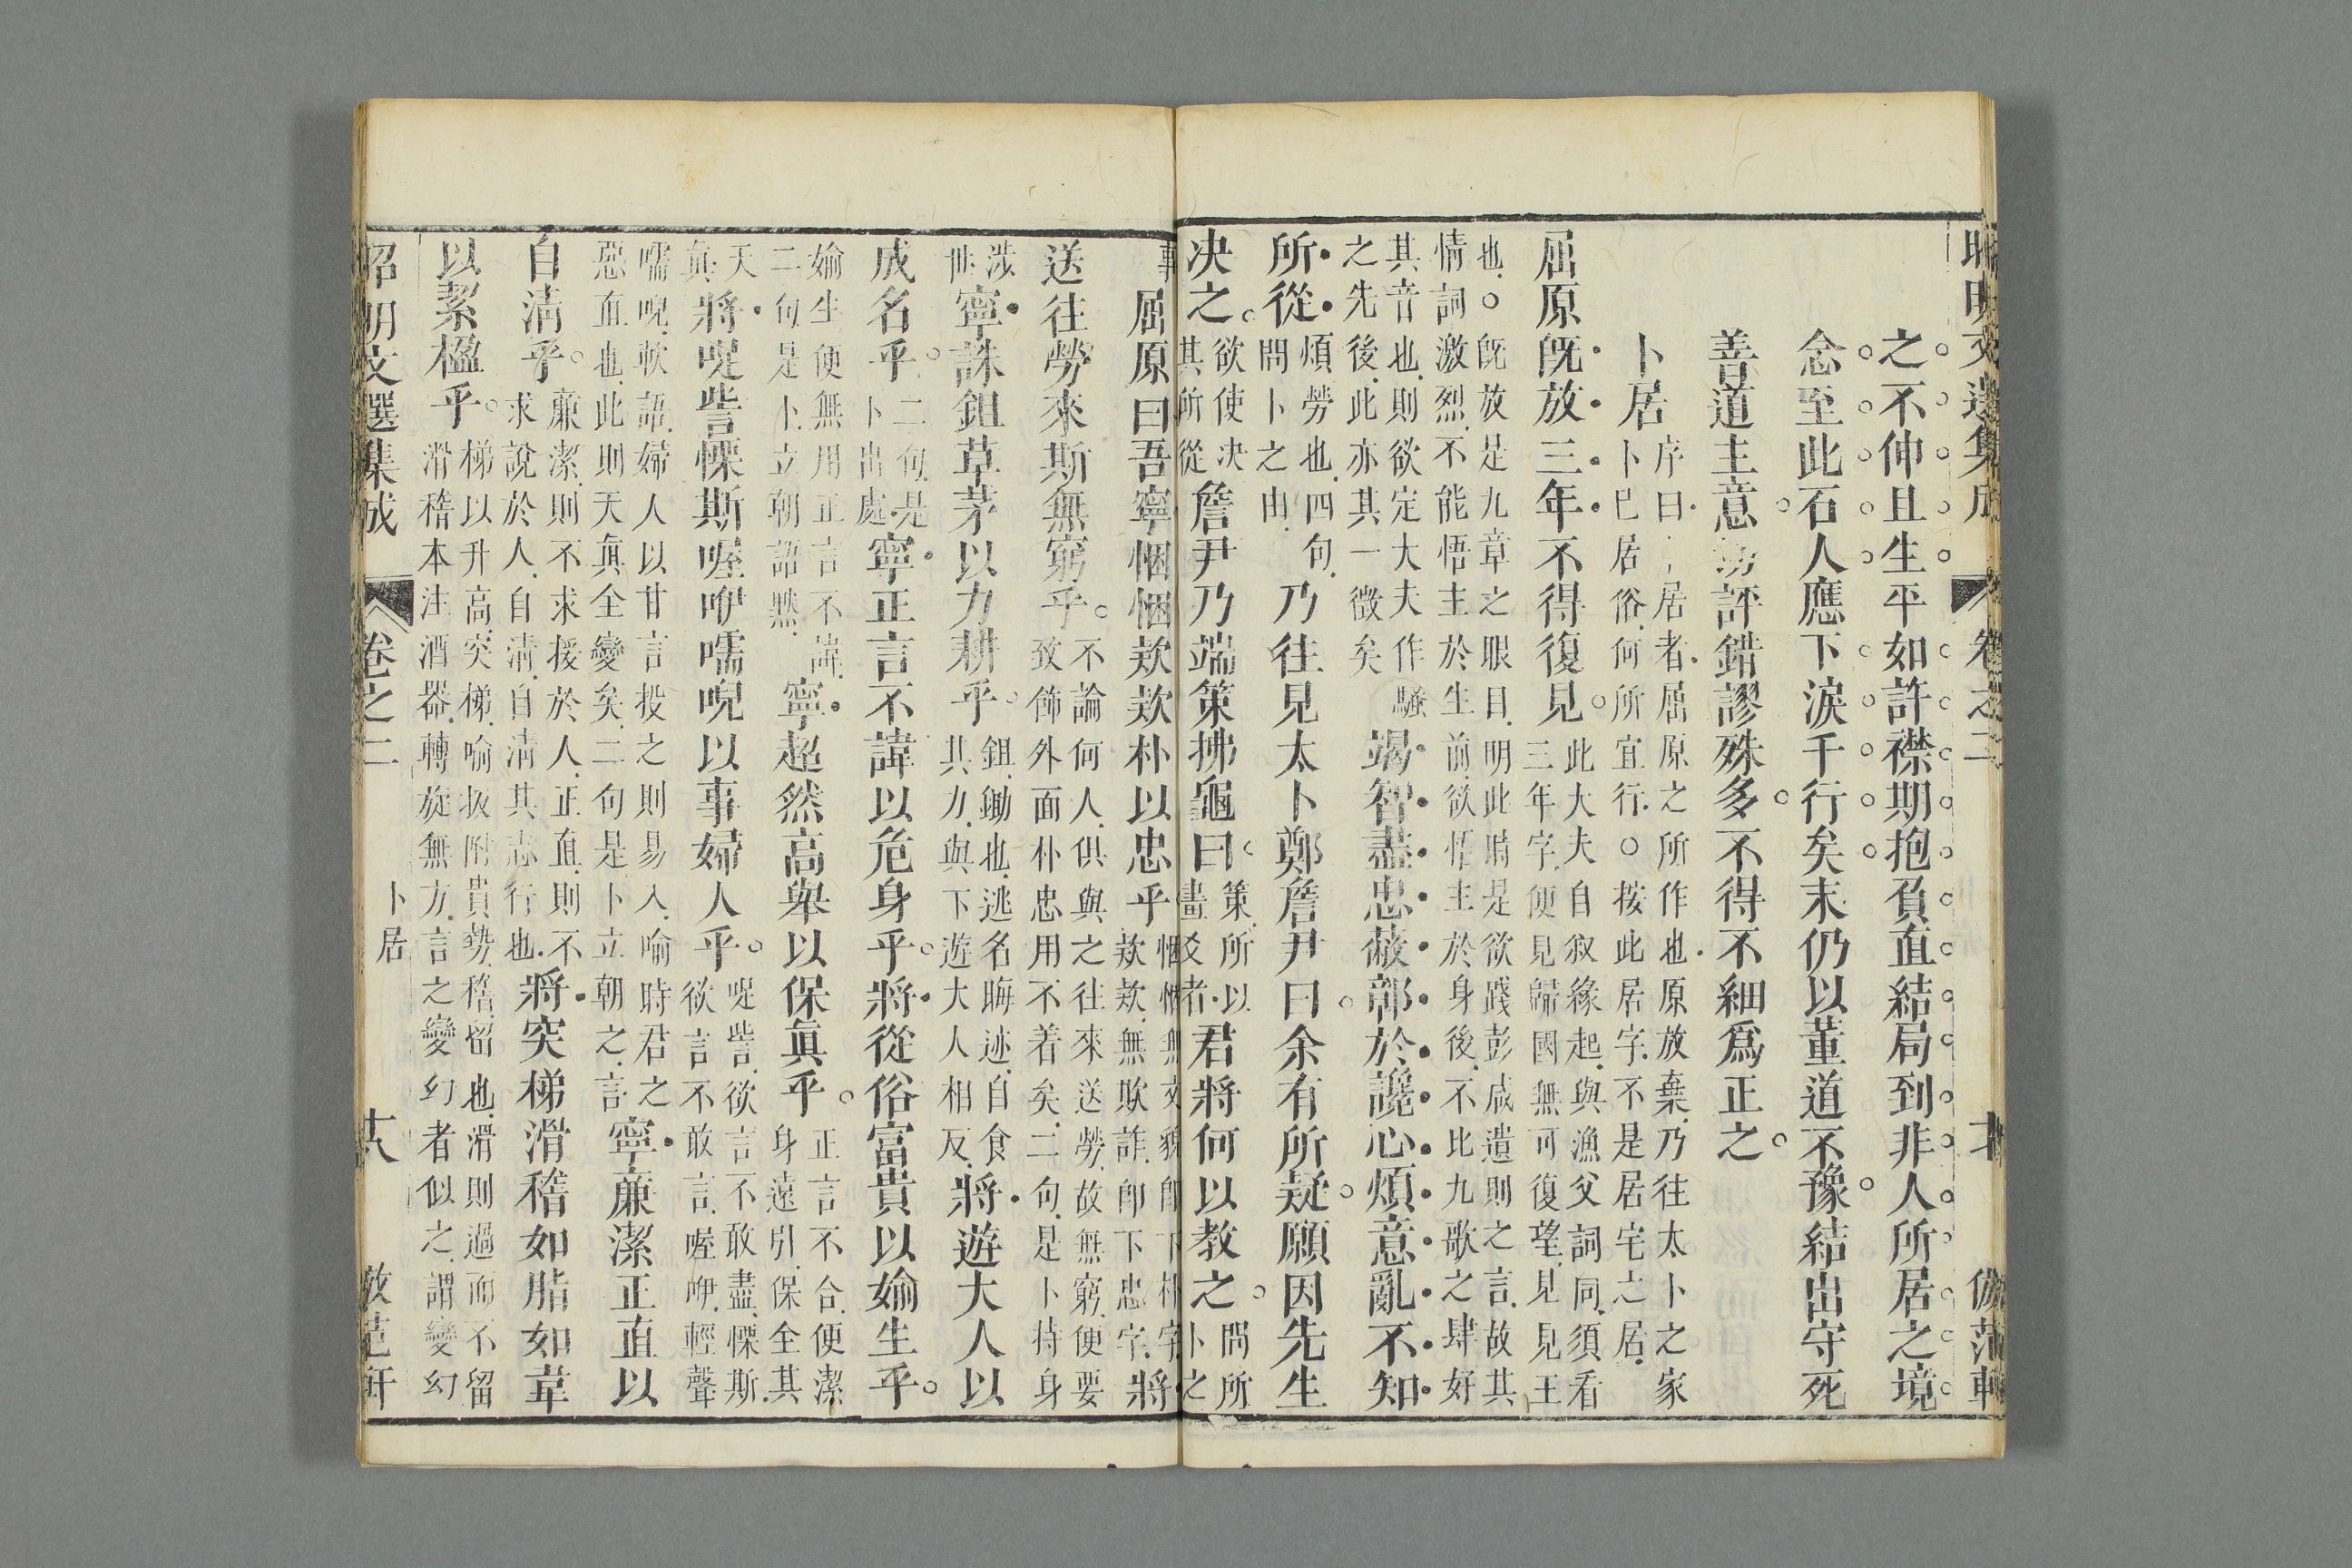 昭明文選集成 卷之二 倣范軒
之不伸且生平如許襟期抱負直結局到非人所居之境
念至此石人應下淚千行矣末仍以董道不豫結出守死
善道主意旁評錯謬殊多不得不細爲正之
卜居
序曰居者屈原之所作也原放棄乃往太卜之家
卜已居俗何所宜行○按此居字不是居宅之居
屈原旣放三年不得復見
此大夫自叙緣起與漁父詞同須看
三年字便見歸國無可復望見見王
也○旣放是九章之眼目明此牖是欲踐彭咸遺則之言故其
情詞激烈不能悟主於生前欲悟主於身後不比九歌之肆好
其音也則欲定大夫作騷
之先後此亦其一徵矣
竭智盡忠蔽鄣於讒心煩意亂不知
所從
煩勞也四句
問卜之由
乃往見太卜鄭詹尹曰余有所疑願因先生
决之
欲使决
其所從
詹尹乃端策拂龜曰
策所以
畫爻者
君將何以教之
問所
卜之
事
屈原曰吾寧悃悃欵欵朴以忠乎
悃悃無文貌卽下朴字
欵欵無欺詐卽下忠字
將
送往勞來斯無窮乎
不論何人俱與之往來送勞故無窮便要
致飾外面朴忠用不着矣二句是卜持身
涉
世
寧誅鉏草茅以力耕乎
鉏鋤也逃名晦迹自食
其力與下遊大人相反
將遊大人以
成名乎
二句是
卜出處
寧正言不諱以危身乎將從俗富貴以媮生乎
媮生便無用正言不諱
二句是卜立朝語黙
寧超然高舉以保眞乎
正言不合便潔
身遠引保全其
天
眞
將哫訾慄斯喔咿嚅唲以事婦人乎
哫訾欲言不敢盡慄斯
欲言不敢言喔咿輕聲
嚅唲軟語婦人以甘言投之則易入喻時君之
惡直也此則天眞全變矣二句是卜立朝之言
寧廉潔正直以
自淸乎
廉潔則不求援於人正直則不
求說於人自淸自淸其志行也
將突梯滑稽如脂如韋
以絜楹乎
梯以升高突梯喻扳附貴勢稽留也滑則過而不留
滑稽本注酒器轉旋無方言之變幻者似之謂變幻
昭明文選集成 卷之二 卜居 十八 倣范軒